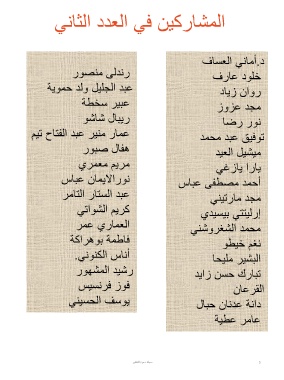 المشاركين في العدد الثاني
د.أماني العساف
خلود عارف
روان زياد
مجد عزوز
نور رضا
توفيق عبد محمد
ميشيل العيد
يارا يازغي
أحمد مصطفى عباس
مجد مارتيني
إرليتتي بيسيدي
محمد الشغروشني
نغم خيطو
البشير مليحا
تبارك حسن زايد
القرعان
دانة عدنان حبال
عامر عطية
رندلى منصور
عبد الجليل ولد حموية
عبير سخطة
ريبال شاشو
عمار منير عبد الفتاح تيم
هفال صبور
مريم معمري
نورالايمان عباس
عبد الستار الثامر
كريم الشواتي
العماري عمر
فاطمة بوهراكة
أناس الكنوني.
رشيد المشهور
فوز فرنسيس
يوسف الحسيني